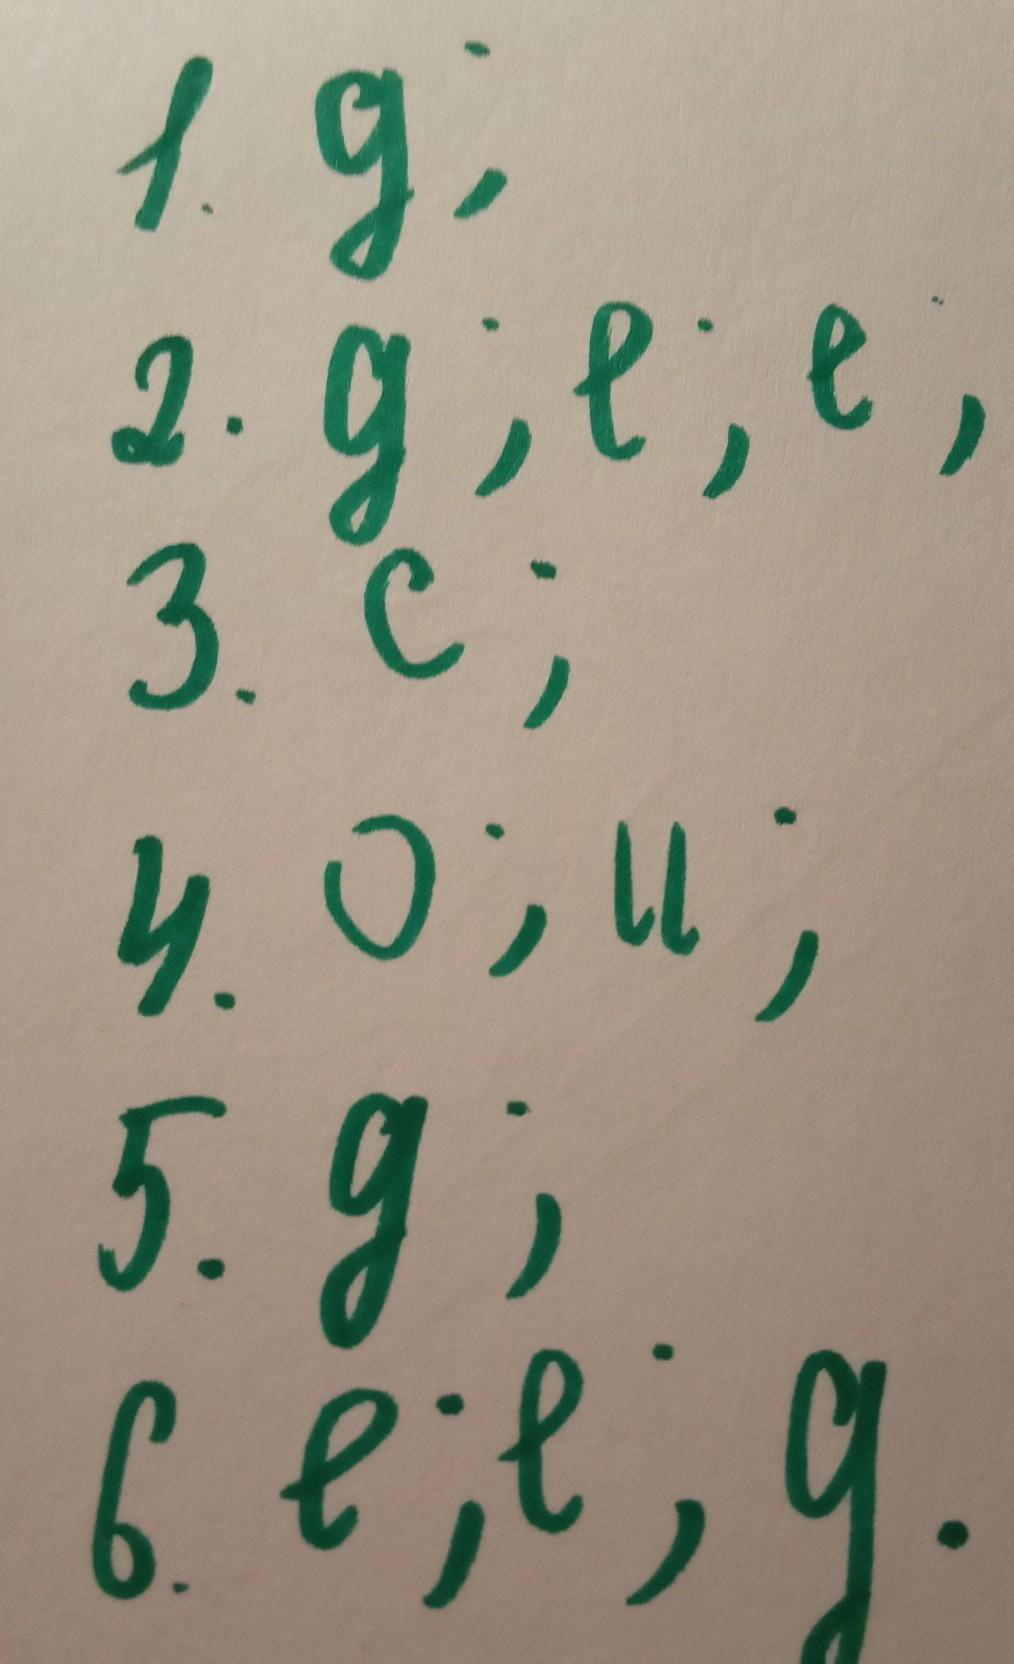 1. д;
2. д; е; е;
3. с;
4. о; и;
5. д;
6. е; е; д.